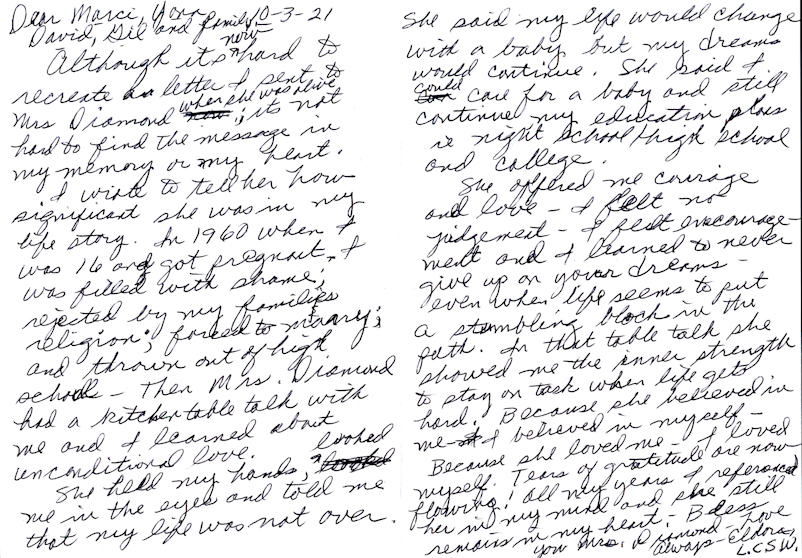 Dear Marci, Yora, 10-3-21
David, Gil and family,
Although it's now hard to
recreate a letter I sent to
Mrs Diamond when she was alive; it's not
hard to find the message in
my memory or my heart.
I wrote to tell her how
significant she was in my
life story. In 1960 when I
was 16 and got pregnant, I
was filled with shame;
rejected by my families
religion; forced to marry;
and thrown out of high
school - Then Mrs. Diamond
had a kitchen table talk with
me and I learned about
unconditional love.
She held my hands, looked
me in the eyes and told me
that my life was not over.
She said my life would change
with a baby but my dreams
would continue. She said I
could care for a baby and still
continue my education plans
in night school/high school
and college.
She offered me courage
and love - I felt no
judgement - I felt encourage-
ment and I learned to never
give up on your dreams -
even when life seems to put
a stumbling block in the
path. In that table talk she
showed me the inner strength
to stay on task when life gets
hard. Because she believed in
me - I believed in myself -
Because she loved me - I loved
myself. Tears of gratitude are now
flowing! All my years I referenced
her in my mind and she still
remains in my heart. Bless
you Mrs. Diamond - Love
always - Eldora,
L.C.S.W.